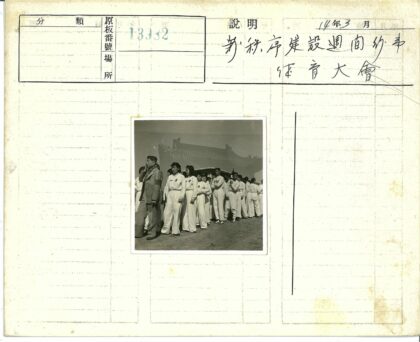 分類
原板番號
場所
13932
說明
14年3月
新秩序建設週間紗市
体育大會